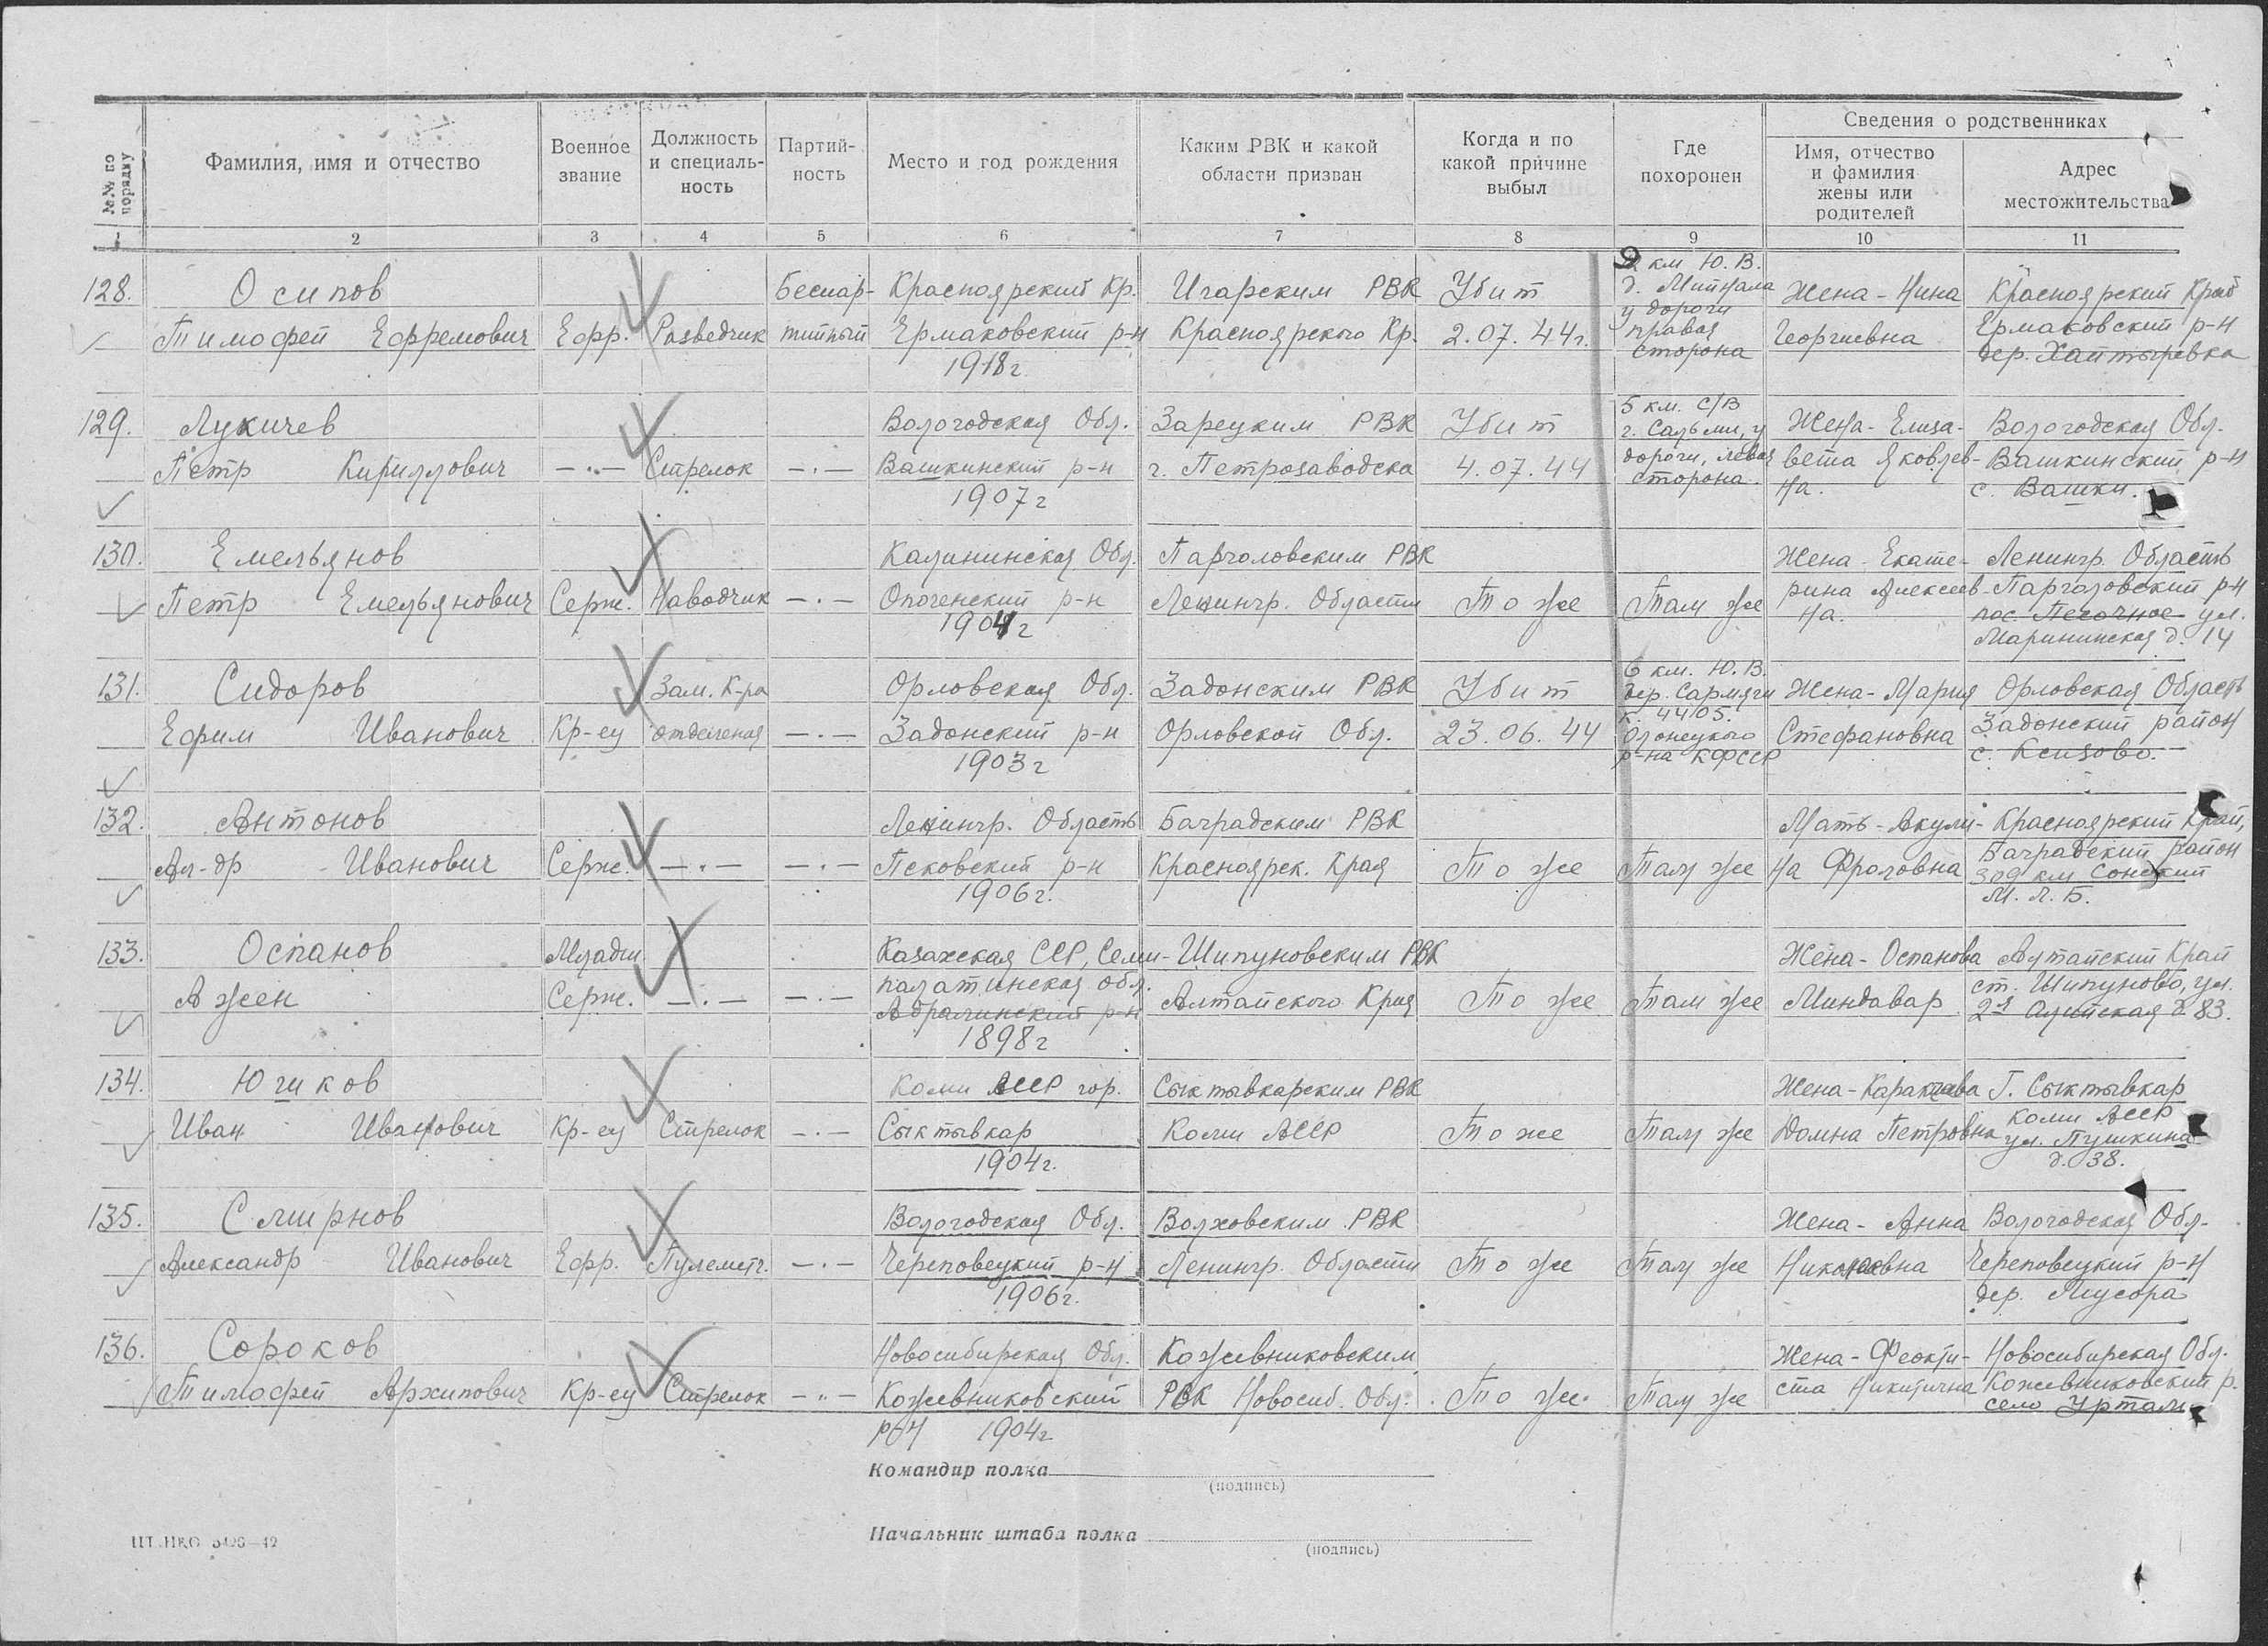 №№ по порядку
Фамилия, имя и отчество
Военное звание
Должность и специаль-ность
Партий-ность
Место и год рождения
Каким РВК и какой области призван
Когда и по какой причине выбыл
Где похоронен
Сведения о родственниках
Имя, отчество и фамилия жены или родителей
Адрес местожительства
1 2 3 4 5 6 7 8 9 10 11
128.
Осипов
Тимофей Ефремович
Ефр.
Разведчик
Беспар-
тийный
Красноярский Кр.
Ермаковский р-н
1918 г
Игарским РВК
Красноярского Кр.
Убит
2.07.44г.
км Ю.В.
д. Мийнала
у дороги
правая
сторона
Жена - Нина
Георгиевна
Красноярский Край
Ермаковский р-н
дер. Хайтыревка
129.
Лукичев
Петр Кириллович
— · —
Стрелок
— · —
Вологодская Обл.
Вашкинский р-н
1907 г
Зарецким РВК
г. Петрозаводска
Убит
4.07.44
5 км. С/В
г. Сальми, у
дороги, левая
сторона.
Жена - Елиза-
вета Яковлев-
на.
Вологодская Обл.
Вашкинский р-н
с. Вашки.
130.
Емельянов
Петр Емельянович
Серж.
Наводчик
— · —
Калининская Обл.
Опоченский р-н
1904 г
Парголовским РВК
Ленингр. Области
То же
Там же
Жена - Екате-
рина Алексеев-
на.
Ленингр. Область
Парголовский р-н
пос. Песочное ул.
Марининская д. 14
131.
Сидоров
Ефим Иванович
Кр-ец
Зам. К-ра
отделения
— · —
Орловская Обл.
Задонский р-н
1903 г
Задонским РВК
Орловской Обл.
Убит
23.06.44
6 км. Ю.В.
дер. Сармяги
к. 4405.
Олонецкого
р-на КФССР
Жена - Мария
Стефановна
Орловская Область
Задонский район
с. Ксизово.
132.
Антонов
Ал-др Иванович
Серж.
— · —
— · —
Ленингр. Область
Псковский р-н
1906 г.
Баградским РВК
Красноярск. Края
То же
Там же
Мать - Акули-
на Фроловна
Красноярский Край,
Баградский район
309 км Сонский
М.Л.Б.
133.
Оспанов
Ажен
Младш.
Серж.
— · —
— · —
Казахская ССР, Семи-
палатинская обл.
Абралинский р-н
1898 г
Шипуновским РВК
Алтайского Края
То же
Там же
Жена - Оспанова
Миндавар
Алтайский Край
ст. Шипуново, ул.
2я Алейская д 83.
134.
Югиков
Иван Иванович
Кр-ец
Стрелок
— · —
Коми АССР гор.
Сыктывкар
1904 г.
Сыктывкарским РВК
Коми АССР
То же
Там же
Жена -
Домна Петровна
Г. Сыктывкар
Коми АССР
ул. Пушкина
д. 38.
135.
Смирнов
Александр Иванович
Ефр.
Пулеметч.
— · —
Вологодская Обл.
Череповецкий р-н
1906 г.
Волховским РВК
Ленингр. Области
То же
Там же
Жена - Анна
Николаевна
Вологодская Обл.
Череповецкий р-н
дер. Мусора
136.
Сороков
Тимофей Архипович
Кр-ец
Стрелок
— · —
Новосибирская Обл.
Кожевниковский
р-н 1904 г
Кожевниковским
РВК Новосиб. Обл.
То же
Там же
Жена - Феокти-
ста Никитична
Новосибирская Обл.
Кожевниковский р.
село Уртам
Командир полка
(подпись)
Начальник штаба полка
(подпись)